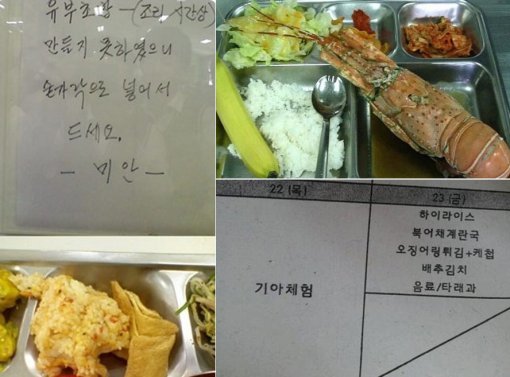 유부초밥 - (조리 시간상)
만들지 못하였으니
숟가락으로 넣어서
드세요.
- 미안 -
22 (목)
기아체험
23 (금)
하이라이스
북어채계란국
오징어링튀김+케첩
배추김치
음료/타래과